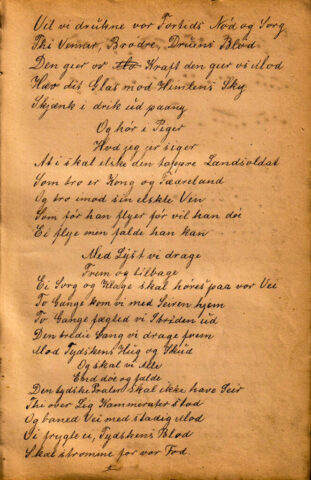 Vil vi drukne vor Fortids Nød og Sorg
Thi Venner, Brødre, Druens Blod
Den gier os Kraft den gier os Mod
Hæv dit Glas mod Himlens Sky
Skjænk i drik ud paany
Og hør i Piger
Hvad jeg er siger
At i skal elske den tappre Landsoldat
Som tro er Kong og Fædreland
Og tro imod sin elskte Ven
Som før han flyer før vil han døi
Ei flye men falde han kan
Med Lyst vi drage
Frem og tilbage
Ei Sorg og Klage skal høres paa vor Vei
To Gange kom vi med Seiren hjem
To Gange fægted vi Striden ud
Den tredie Gang vi drage frem
Mod Tydskens Hug og Skud
Og skal vi Alle
End døe og falde
Den tydske Praler skal ikke have Seir
Thi over Lig Kammerater stod
Og baned Vei med stadig Mod
Vi frygte ei, Tydskens Blod
Skal strømme for vor Fod